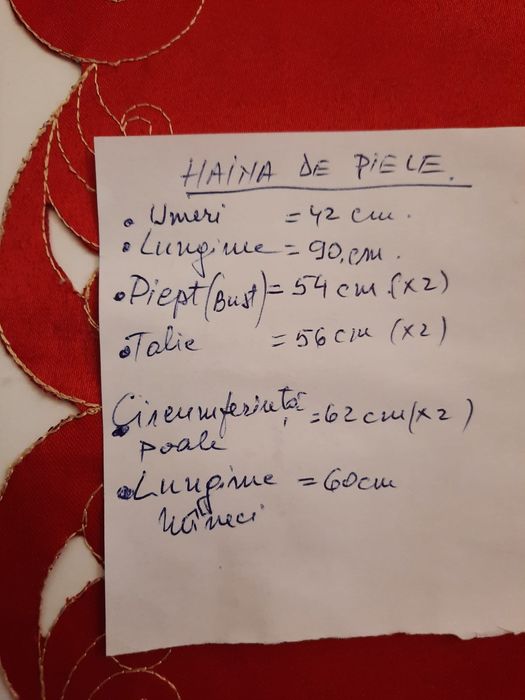 HAINA DE PIELE.
• Umeri = 42 cm.
• Lungime = 90,cm.
• Piept (Bust) = 54 cm (x2)
• Talie = 56 cm (x2)
• Circumferință = 62 cm (x2)
poale
• Lungime = 60cm
Mâneci